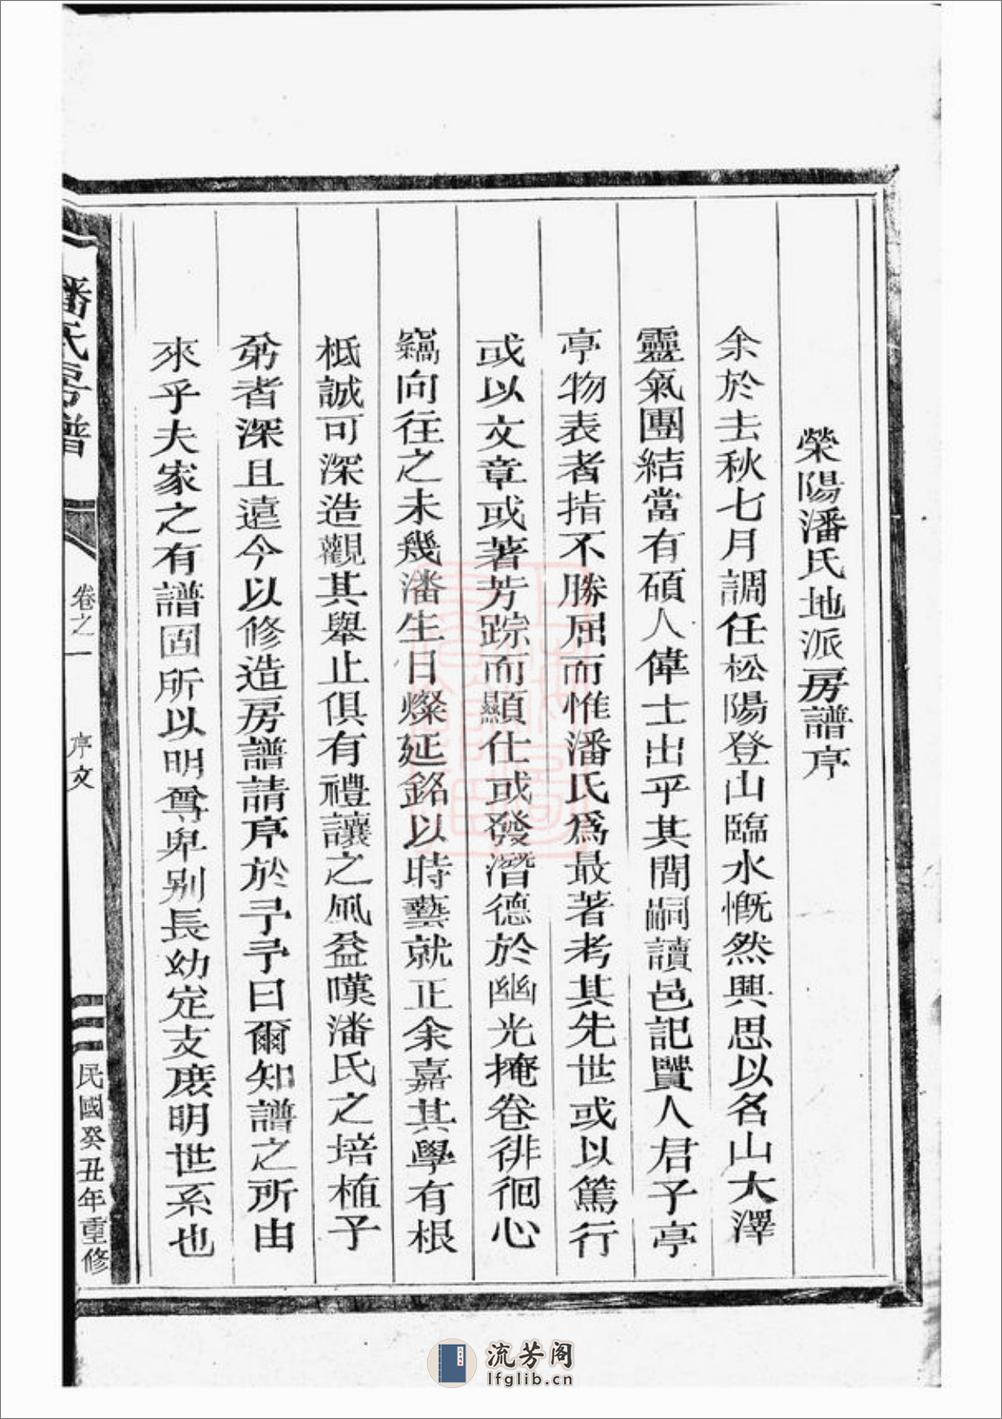 滎陽潘氏地派房譜序
余於去秋七月調任松陽登山臨水慨然興思以名山大澤
靈氣團結當有碩人偉士出乎其間嗣讀邑記賢人君子亭
亭物表者指不勝屈而惟潘氏爲最著考其先世或以篤行
或以文章或著芳踪而顯仕或發潛德於幽光掩卷徘徊心
竊向往之未幾潘生日燦延銘以時藝就正余嘉其學有根
柢誠可深造觀其舉止俱有禮讓之風益嘆潘氏之培植子
弟者深且遠今以修造房譜請序於予予曰爾知譜之所由
來乎夫家之有譜固所以明尊卑别長幼定支庶明世系也
潘氏房譜
卷之一
序文
民國癸丑年重修
流芳阁
lfglib.cn